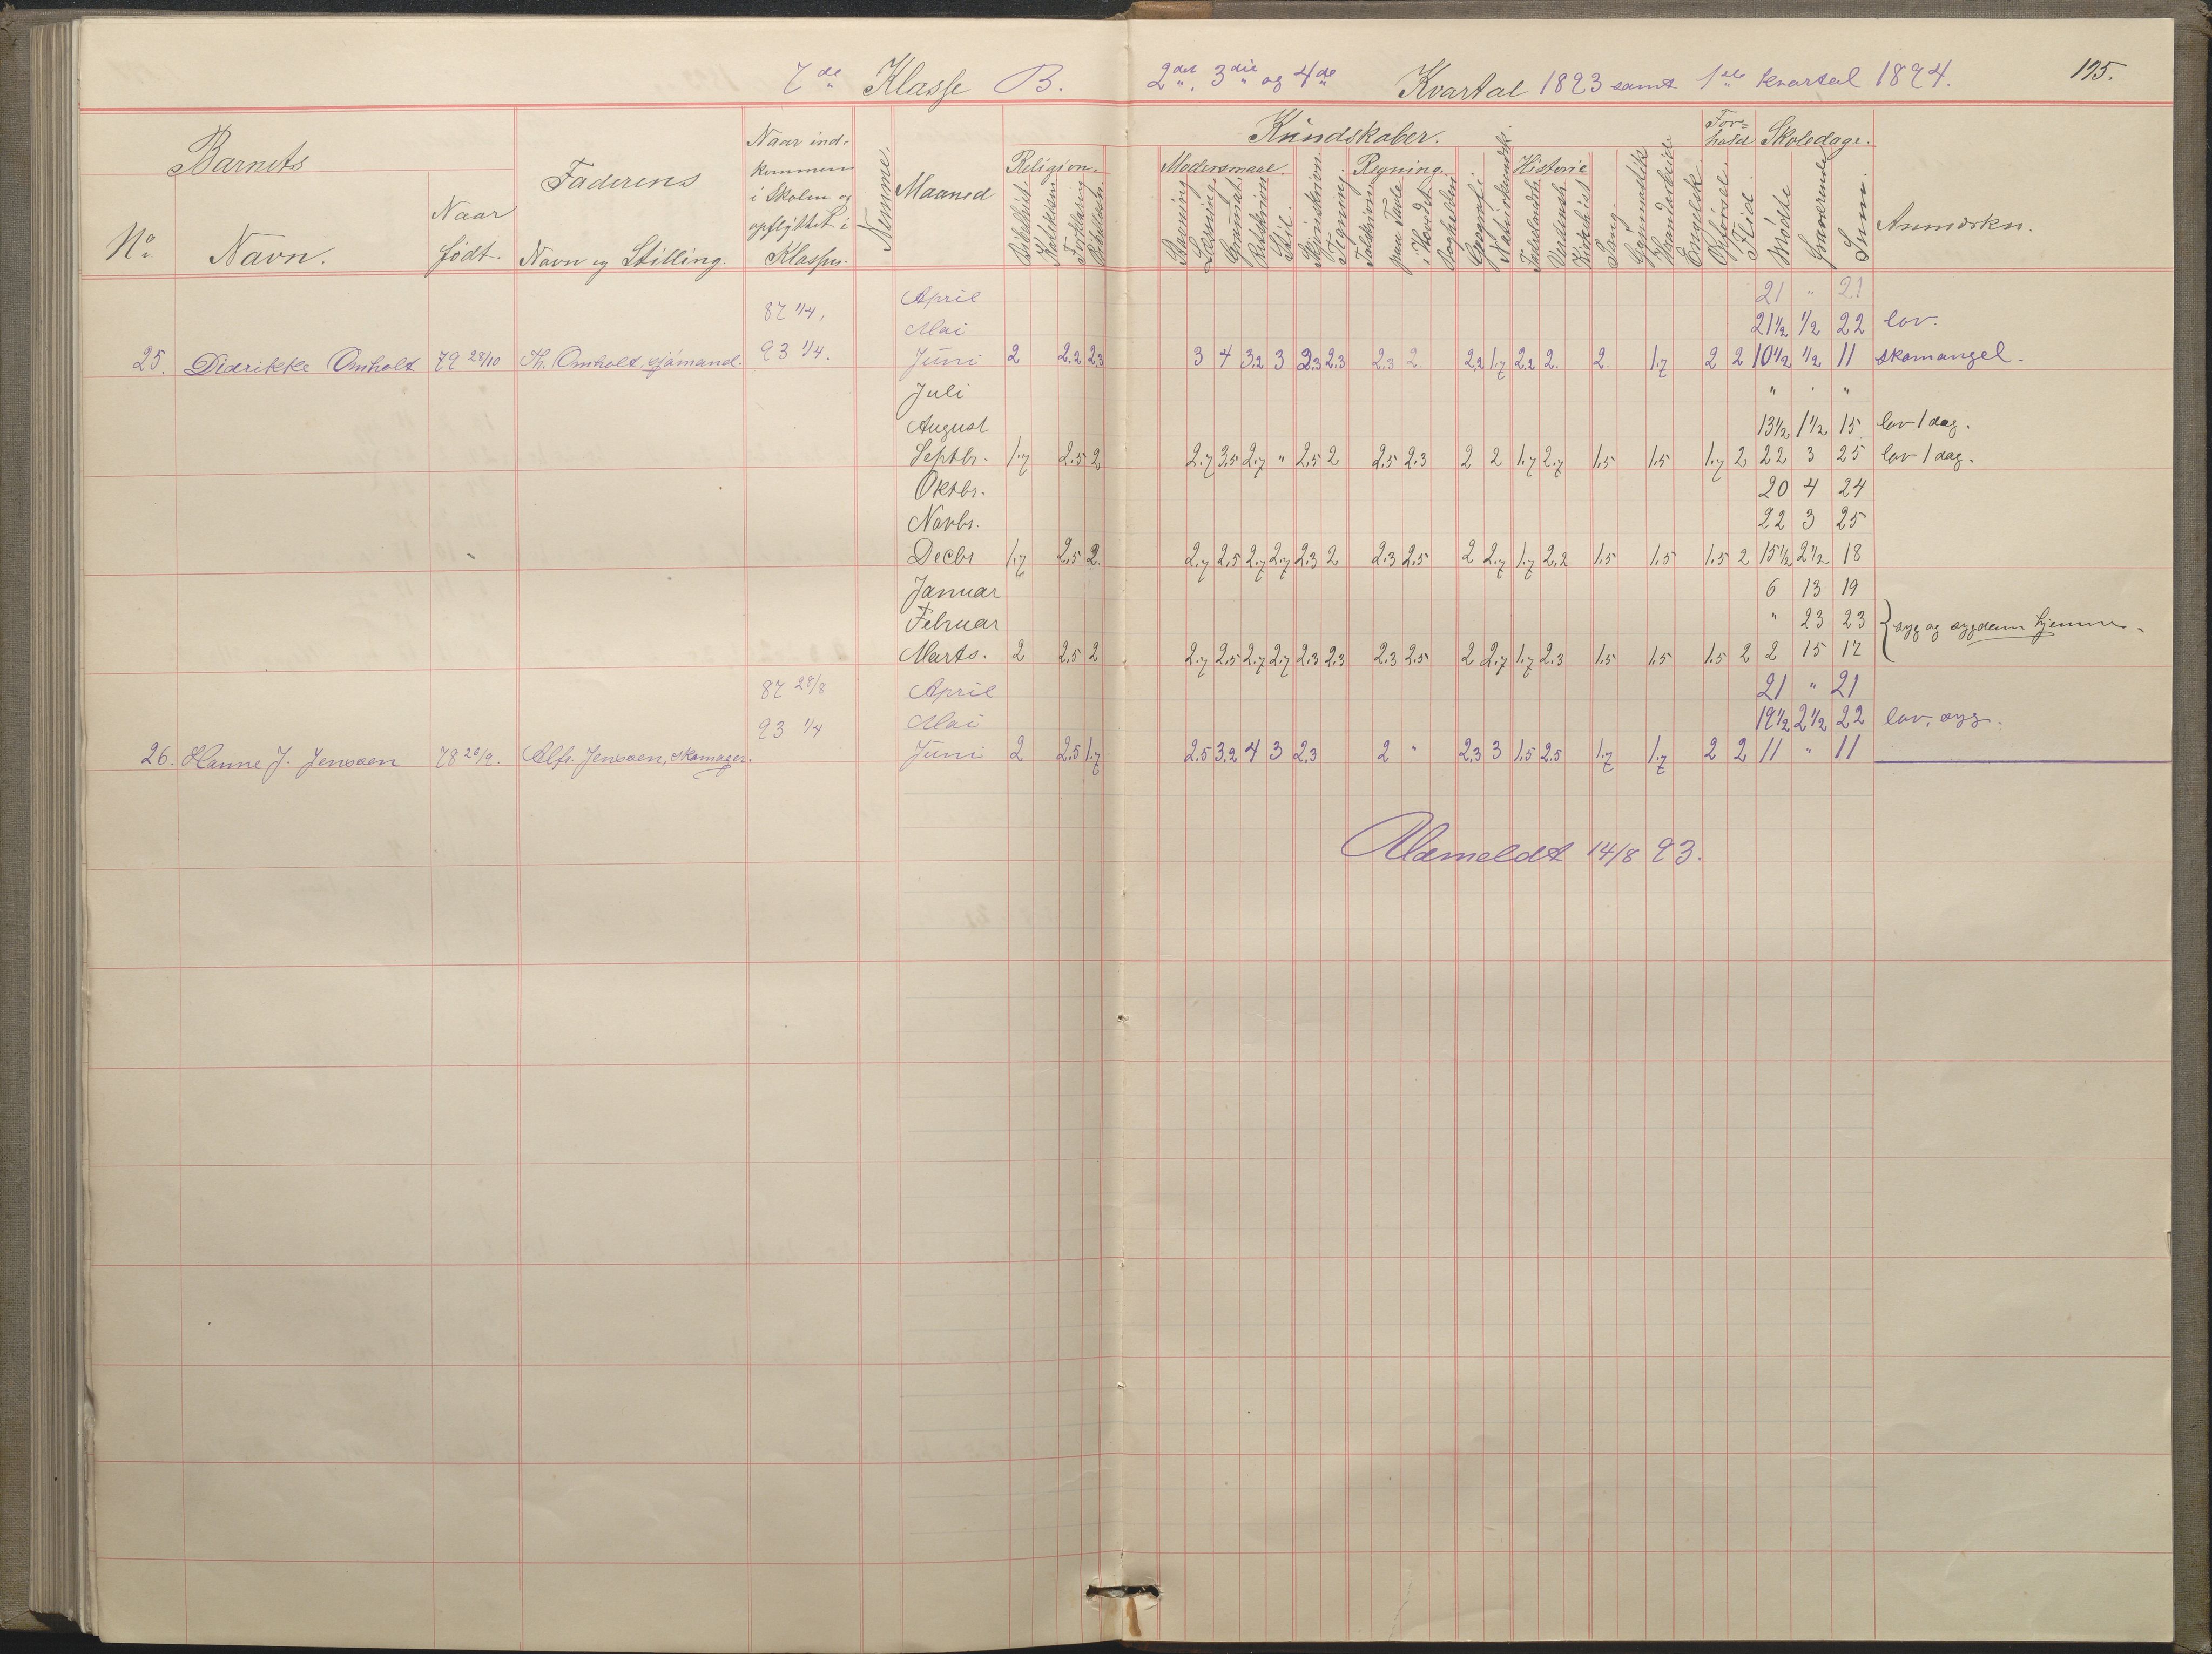 7de Klasse B. 2det, 3die og 4de Kvartal 1893 samt 1ste kvartal 1894. 195.
Barnets Faderens Naar ind-kommen i Skolen og opflyttet i Klassen. Nemme. Maaned Kundskaber. For-hold Skoledage. Anmærkn.
No Navn. Naar født. Navn og Stilling. Religion. Modersmaal. Regning. Historie
Bibelhist. Forklaring Læsning Gramat. Retskrivn Stil. Skjønskrivn. Tegning. paa Tavle i Hovedet Bogholderi Geografi Naturkundsk. Fædrelandsh. Verdensh. Kirkehist Sang. Gymnastik Haandarbeide Engelsk. Opførsel. Flid. Mødte Fraværende Sum.
87 1/4, April 21 " 21
Mai 21½ ½ 22 lov.
25. Didrikke Omholt 79 28/10 Th. Omholt, sjømand. 93 1/4. Juni 2 2.2 2,3 3 4 3,2 3 2,3 2,3 2,3 2. 2,2 1.7 2,2 2. 2. 1.7 2 2 10½ ½ 11 skomangel.
Juli " " "
August 13½ 1½ 15 lov 1 dag.
Septbr. 1.7 2.5 2 2.7 3,5 2.7 " 2,5 2 2,5 2.3 2 2 1.7 2.7 1.5 1.5 1.7 2 22 3 25 lov 1 dag.
Oktbr. 20 4 24
Novbr. 22 3 25
Decbr 1.7 2,5 2. 2.7 2,5 2.7 2.7 2,3 2 2.3 2.5 2 2.7 1.7 2,2 1.5 1.5 1.5 2 15½ 2½ 18
Januar 6 13 19
Februar " 23 23 syg og sygdom hjemme.
Marts. 2 2,5 2 2.7 2.5 2.7 2.7 2.3 2.3 2.3 2.5 2 2.7 1.7 2.3 1.5 1.5 1.5 2 2 15 17
87 28/8 April 21 " 21
93 1/4 Mai 19½ 2½ 22 lov, syg.
26. Hanne J. Jensen 78 20/9. Alfr. Jensen, skomager. Juni 2 2.5 1.7 2.5 3,2 4 3 2,3 2 " 2,3 3 1.5 2.5 1.7 1.7 2 2 11 " 11
Udmeldt 14/8 93.